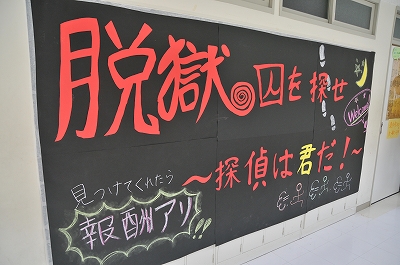 脱獄囚を探せ
Welcome
～探偵は君だ！～
見つけてくれたら
報酬アリ!!